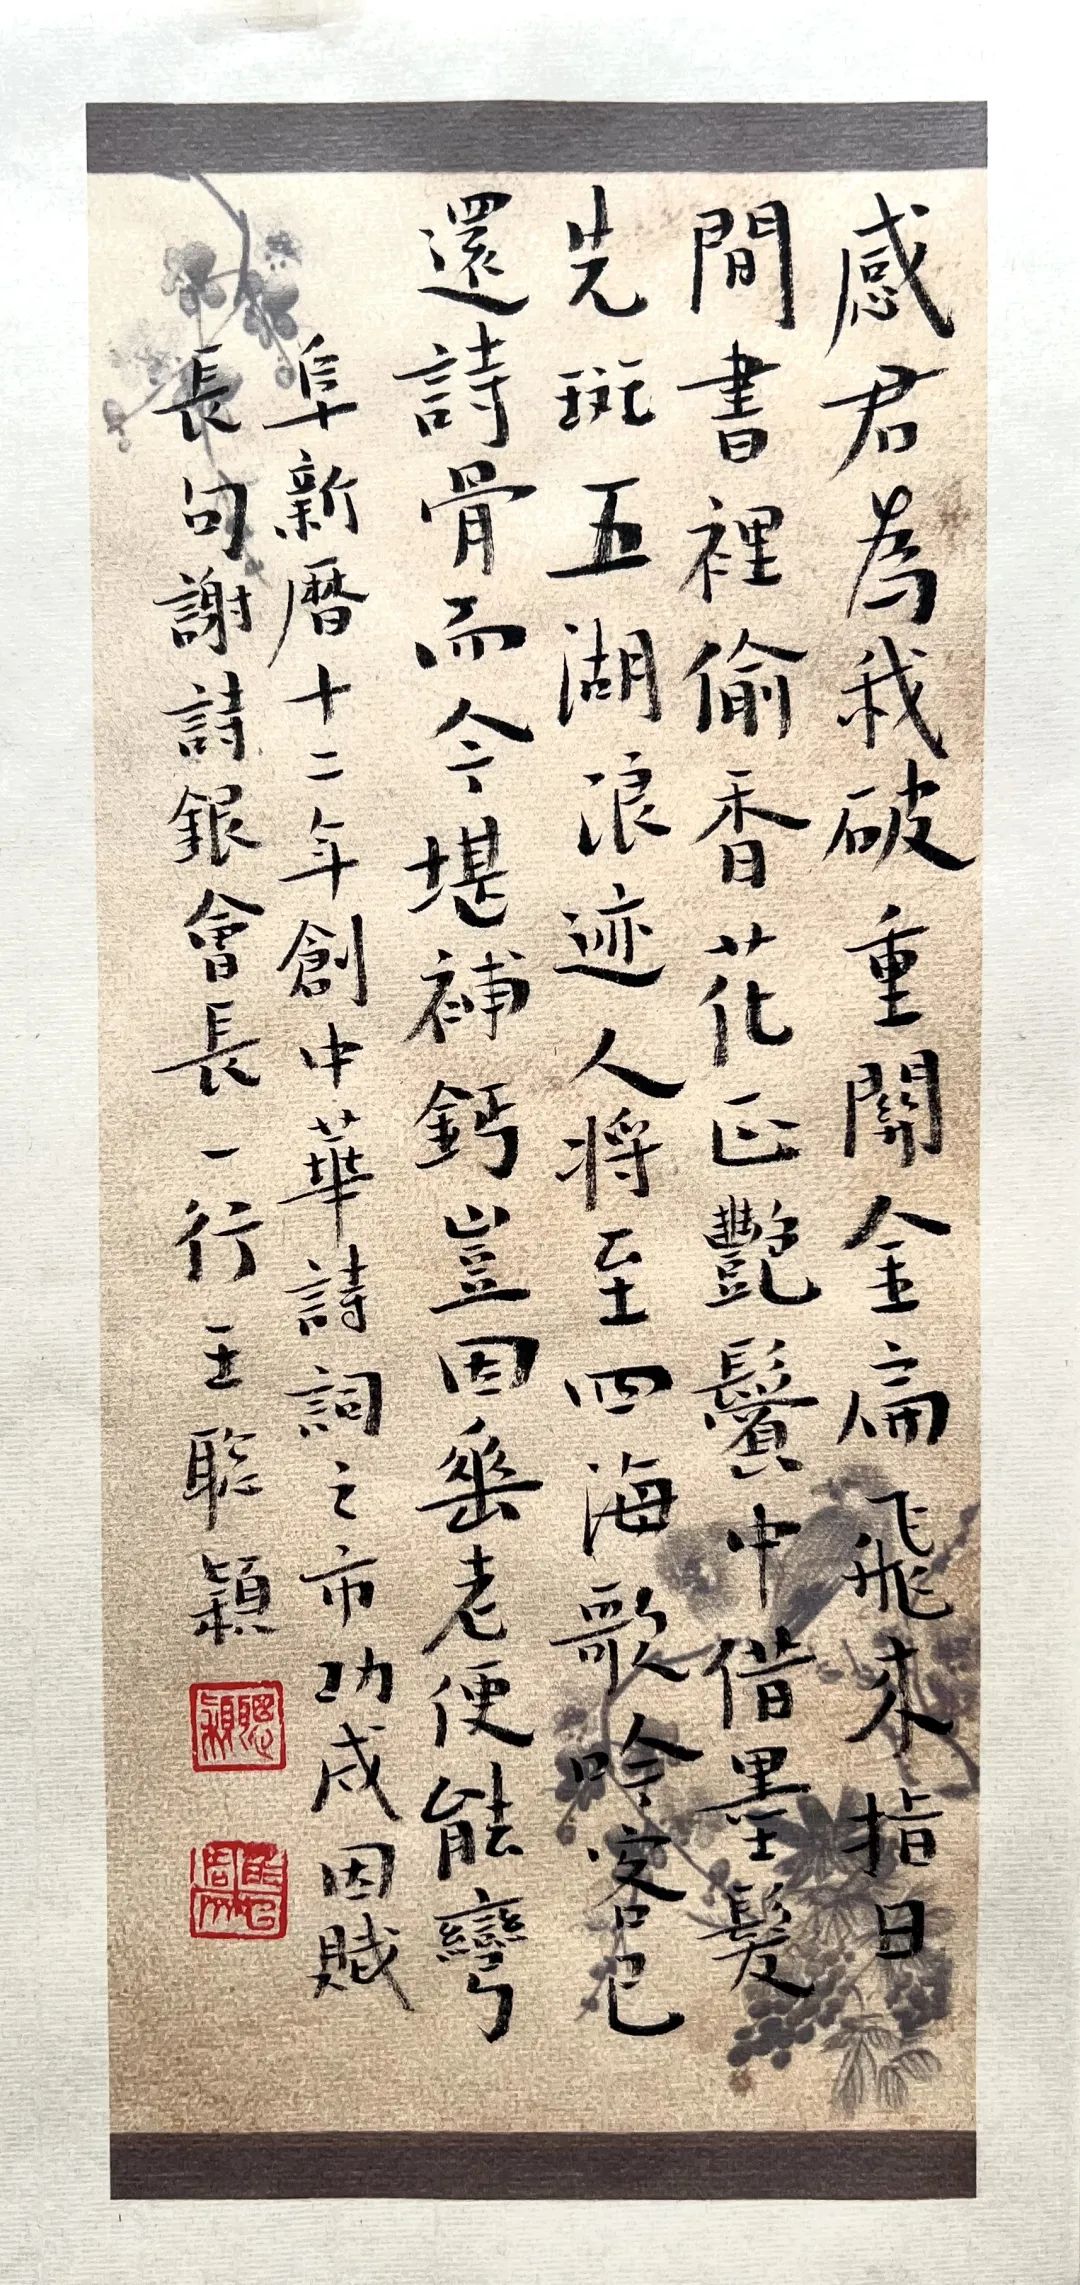 感君為我破重關金扁飛來指日
間書裡偷香花正艷鬢中借墨髮
先斑五湖浪迹人將至四海歌吟客已
還詩骨而今堪補鈣豈因垂老便能彎
阜新曆十二年創中華詩詞之市功成因賦
長句謝詩銀會長一行王聰穎
聰穎